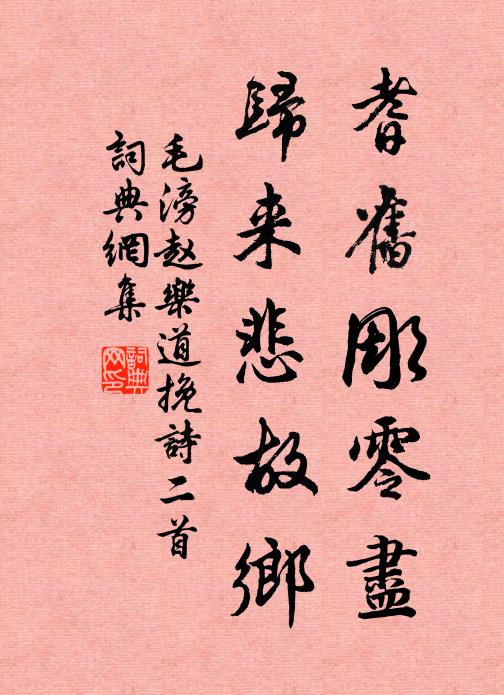 耆舊彫零盡
歸来悲故鄉
毛滂赵樂道挽詩二首
詞典網集
詞典網印